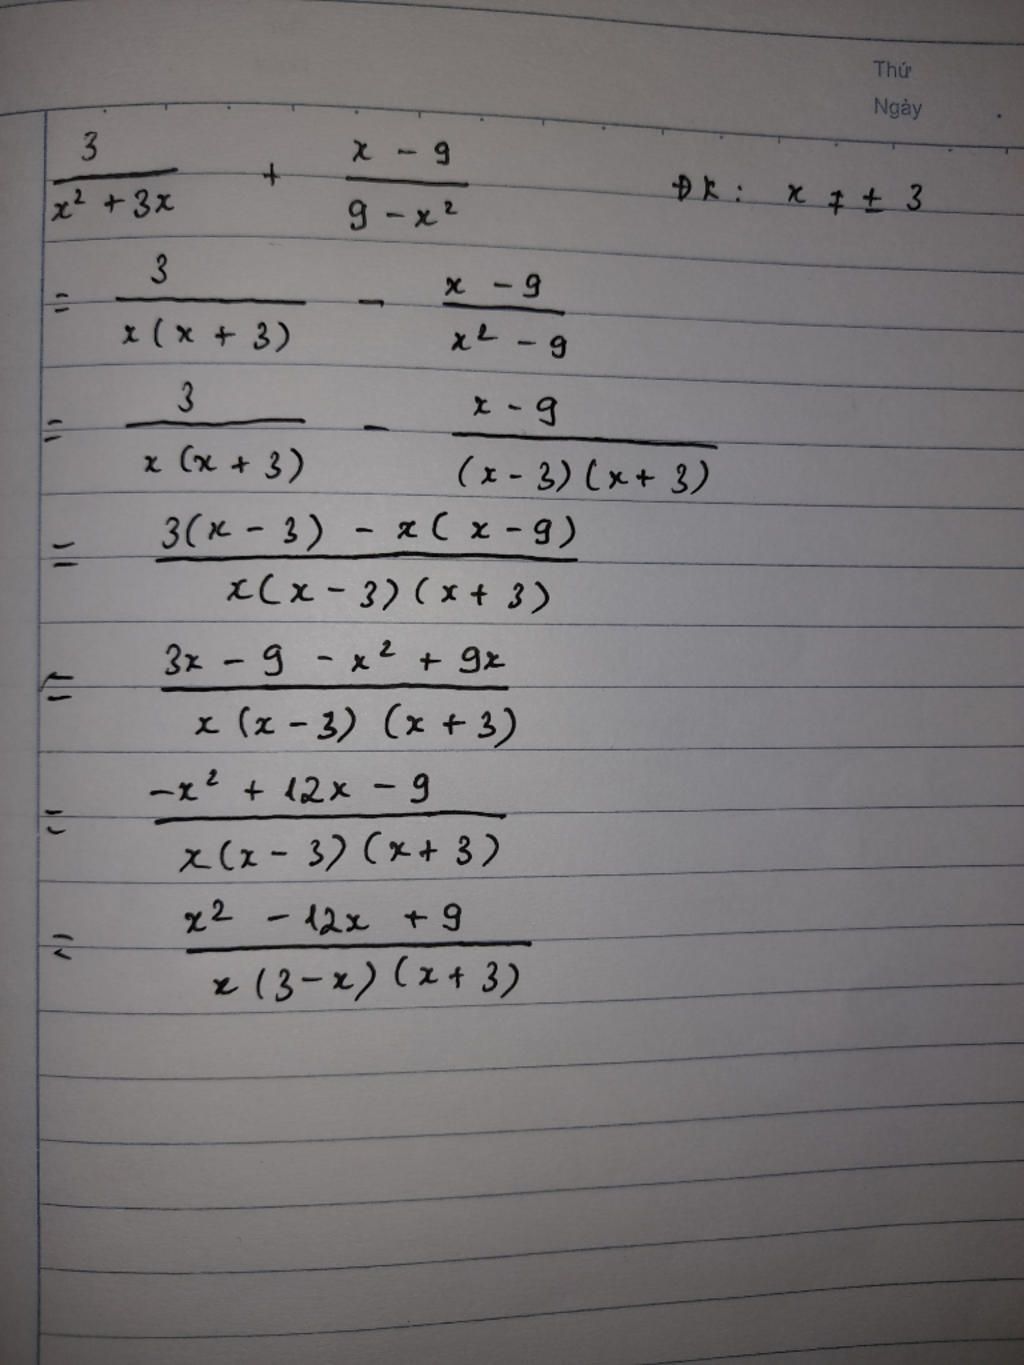 Thứ
Ngày
3/(x² + 3x) + (x - 9)/(9 - x²) ĐK: x ≠ ± 3
= 3/(x(x + 3)) - (x - 9)/(x² - 9)
= 3/(x(x + 3)) - (x - 9)/((x - 3)(x + 3))
= (3(x - 3) - x(x - 9))/(x(x - 3)(x + 3))
= (3x - 9 - x² + 9x)/(x(x - 3)(x + 3))
= (-x² + 12x - 9)/(x(x - 3)(x + 3))
= (x² - 12x + 9)/(x(3 - x)(x + 3))